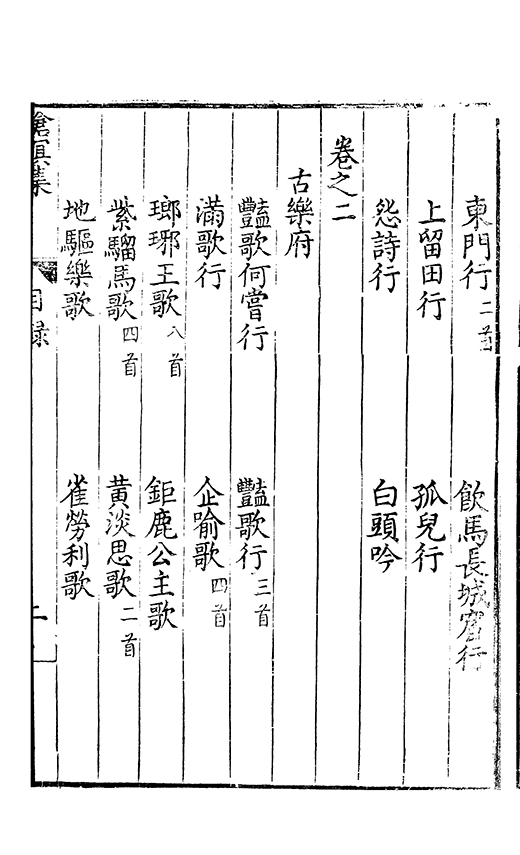 東門行二首　飲馬長城窟行
上留田行　孤兒行
怨詩行　白頭吟
卷之二
古樂府
豔歌何嘗行　豔歌行三首
滿歌行　企喻歌四首
瑯琊王歌八首　鉅鹿公主歌
紫騮馬歌四首　黃淡思歌二首
地驅樂歌　雀勞利歌
滄溟集　目錄　二